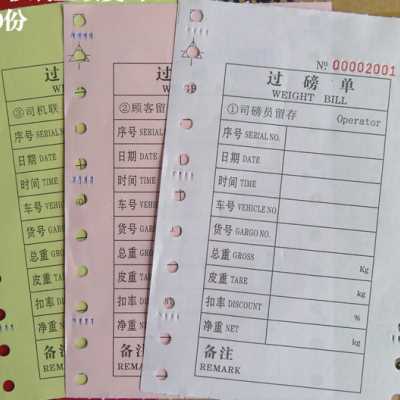 0份
过
③司机联
序号 SERIAL
日期 DATE
时间 TIME
车号 VEHICLE
货号 GARGO
总重 GROSS
皮重 TARE
扣率 DISCOUNT
净重 NET
备注
REMARK
过
WE
②顾客留
序号 SERIAL
日期 DATE
时间 TIME
车号 VEHICLE
货号 GARGO
总重 GROSS
皮重 TARE
扣率 DISCOUNT
净重 NET
备注
REMARK
№ 00002001
过磅单
WEIGHT BILL
①司磅员留存 Operator
序号 SERIAL NO.
日期 DATE
时间 TIME
车号 VEHICLE NO
货号 GARGO NO.
总重 GROSS Kg
皮重 TARE kg
扣率 DISCOUNT %
净重 NET kg
备注
REMARK